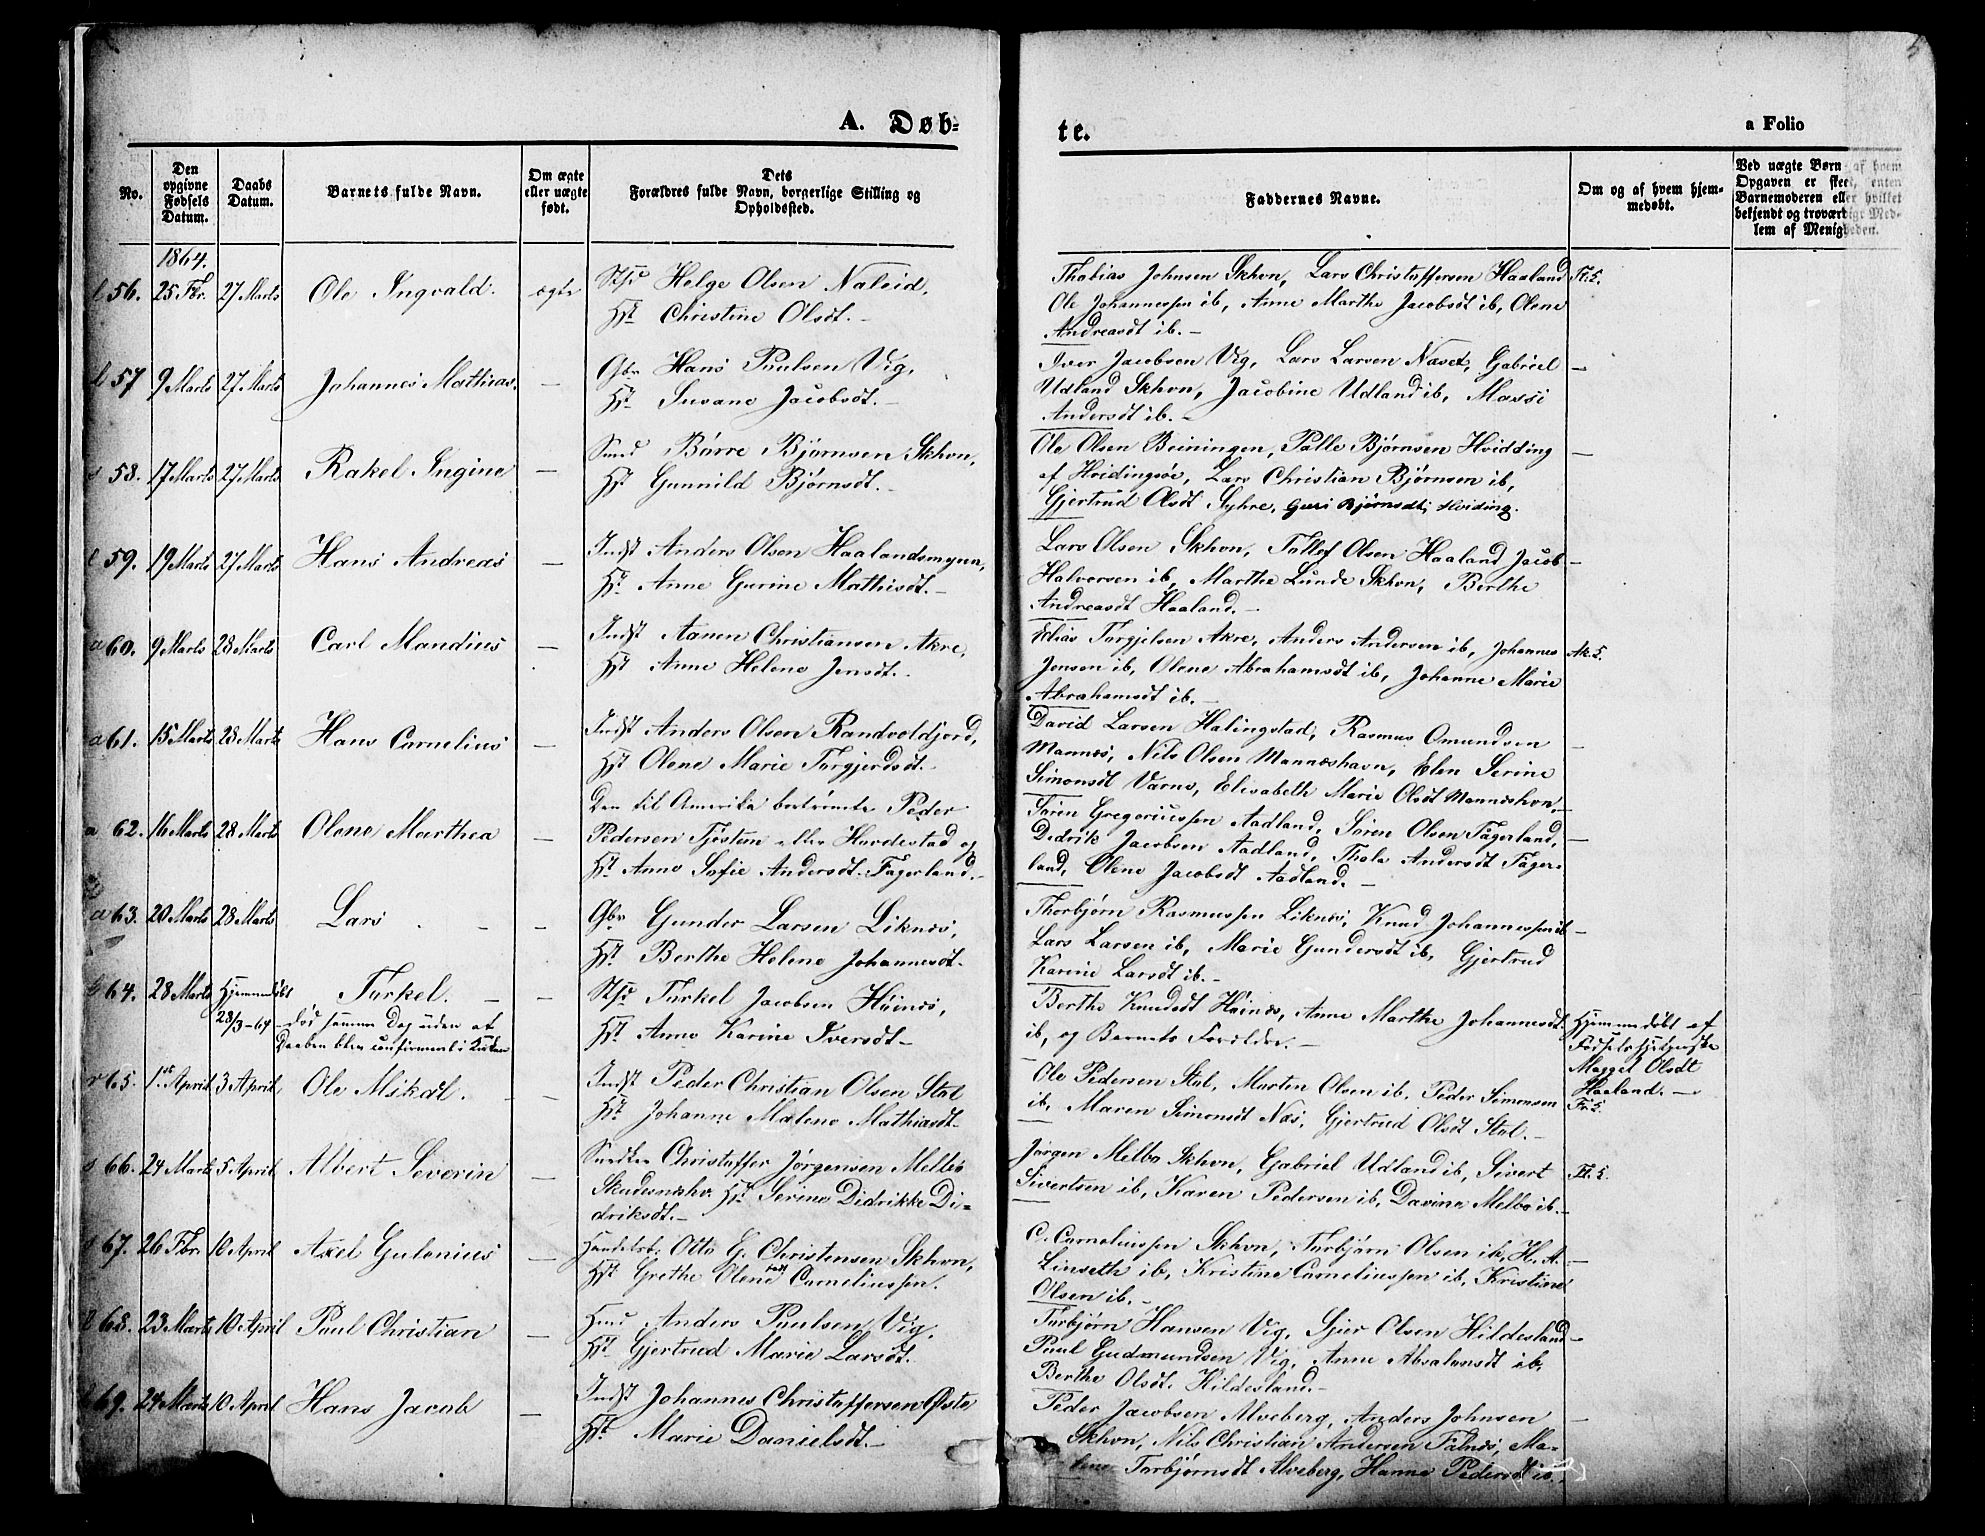 A. Døb=
te.
a Folio
5
No.
Den opgivne Fødsels Datum.
Daabs Datum.
Barnets fulde Navn.
Om ægte eller uægte født.
Dets Forældres fulde Navn, borgerlige Stilling og Opholdssted.
Faddernes Navne.
Om og af hvem hjem-medøbt.
Ved uægte Børn af hvem Opgaven er skeet, enten Barnemoderen eller hvilket bekjendt og troværdigt Med-lem af Menigheden.
1864.
56. 25 Fbr. 27 Marts Ole Ingvald. ægte Helge Olsen Naleid,
Hst Christine Olsdt. –
Thobias Johnsen Skhvn, Lars Christoffersen Haaland Fr. 5.
Ole Johannessen ib, Anne Marthe Jacobsdt ib, Olene
Andreasdt ib. –
57 9 Marts 27 Marts Johannes Mathias. – Gbr Hans Poulsen Vig,
Hst Susane Jacobsdt. –
Iver Jacobsen Vig, Lars Larsen Naset, Gabriel –
Udland Skhvn, Jacobine Udland ib, Massi
Andersdt ib. –
58. 17 Marts 27 Marts Rakel Ingine – Smed Børre Bjørnsen Skhvn,
Hst Gunnild Bjørnsdt. –
Ole Olsen Beiningen, Palle Bjørnsen Hvidding –
af Hvidingsøe, Lars Christian Bjørnsen ib,
Gjertrud Olsdt Syhre, Guri Bjørnsdt, Hviding.
59. 19 Marts 27 Marts Hans Andreas – Indst Anders Olsen Haalandsmyren,
Hst Anne Gurine Mathisdt. –
Lars Olsen Skhvn, Tollef Olsen Haaland Jacob –
Halvorsen ib, Marthe Lunde Skhvn, Berthe
Andreasdt Haaland. –
a 60. 9 Marts 28 Marts Carl Mandius – Indst Aanen Christiansen Akre,
Hst Anne Helene Jensdt. –
Elias Torgjelsen Akre, Anders Andersen ib, Johannes Ak. 5.
Jensen ib, Olene Abrahamsdt ib, Johanne Marie
Abrahamsdt ib. –
a 61. 15 Marts 28 Marts Hans Cornelius – Indst Anders Olsen Randvoldjord,
Hst Olene Marie Torgjerdsdt. –
David Larsen Halingstad, Rasmus Omundsen –
Mannes, Nils Olsen Manneshavn, Elen Serine
Simonsdt Varne, Elisabeth Marie Olsdt Manneshvn, –
a 62. 16 Marts 28 Marts Olene Marthea – Den til Amerika bortrømte Peder
Pedersen Tjøstem eller Hovdestad og
Hst Anne Sofie Andersdt Fagerland. –
Søren Gregoriussen Aadland, Søren Olsen Fagerland,
Didrik Jacobsen Aadland, Thale Andersdt Fager-
land, Olene Jacobsdt Aadland. –
a 63. 20 Marts 28 Marts Lars – – Gbr Gunder Larsen Liknes,
Hst Berthe Helene Johannesdt.
Thorbjørn Rasmussen Liknes, Knud Johannessen ib –
Lars Larsen ib, Marie Gundersdt ib, Gjertrud
Karine Larsdt ib. –
64. 28 Marts Hjemmedøbt Torkel. – – Torkel Jacobsen Høines,
28/3-64 død samme Dag uden at
Daaben blev confirmeret i Kirken
Hst Anne Karine Iversdt –
Berthe Knudsdt Høines, Anne Marthe Johannesdt.
ib, og Barnets Forældre. –
Hjemmedøbt af
Fødselshjelperske
Magget Olsdt
Haaland. –
65. 1ste April 3 April, Ole Mikal. – – Indst Peder Christian Olsen Stol
Hst Johanne Malene Mathiasdt –
Ole Pedersen Stol, Morten Olsen ib, Peder Simonsen Fr. 5.
ib, Maren Simonsdt Næs, Gjertrud Olsdt Stol. –
66. 24 Marts 5 April Albert Siverin – Snedker Christoffer Jørgensen Melbo
Skudesneshv. Hst Serine Didrikke Di=
driksdt. –
Jørgen Melbo Skhvn, Gabriel Udland ib, Sivert Fr. 5.
Sivertsen ib, Karen Pedersen ib, Davine Melbo ib. –
67. 26 Fbr. 10 April Axel Gulonius – Handelsb. Otto G. Christensen Skhvn,
Hst Grethe Olene født Corneliussen.
C. Corneliussen Skhvn, Torbjørn Olsen ib, H. A. –
Linseth ib, Kristine Corneliussen ib, Kristiane
Olsen ib. –
68. 23 Marts 10 April Paul Christian – Anders Poulsen Vig,
Hst Gjertrud Marie Larsdt.
Torbjørn Hansen Vig, Sjur Olsen Hildesland –
Poul Gudmundsen Vig, Anne Absalonsdt ib,
Berthe Olsdt. Hildesland. –
69. 24 Marts 10 April Hans Jacob – Indst Johannes Christoffersen Østa
Hst Marie Danielsdt. –
Peder Jacobsen Alveberg, Anders Johnsen –
Skhvn, Nils Christian Andersen Falnes, Ma=
lene Torbjørnsdt Alveberg, Hanna Pedersdt ib. –